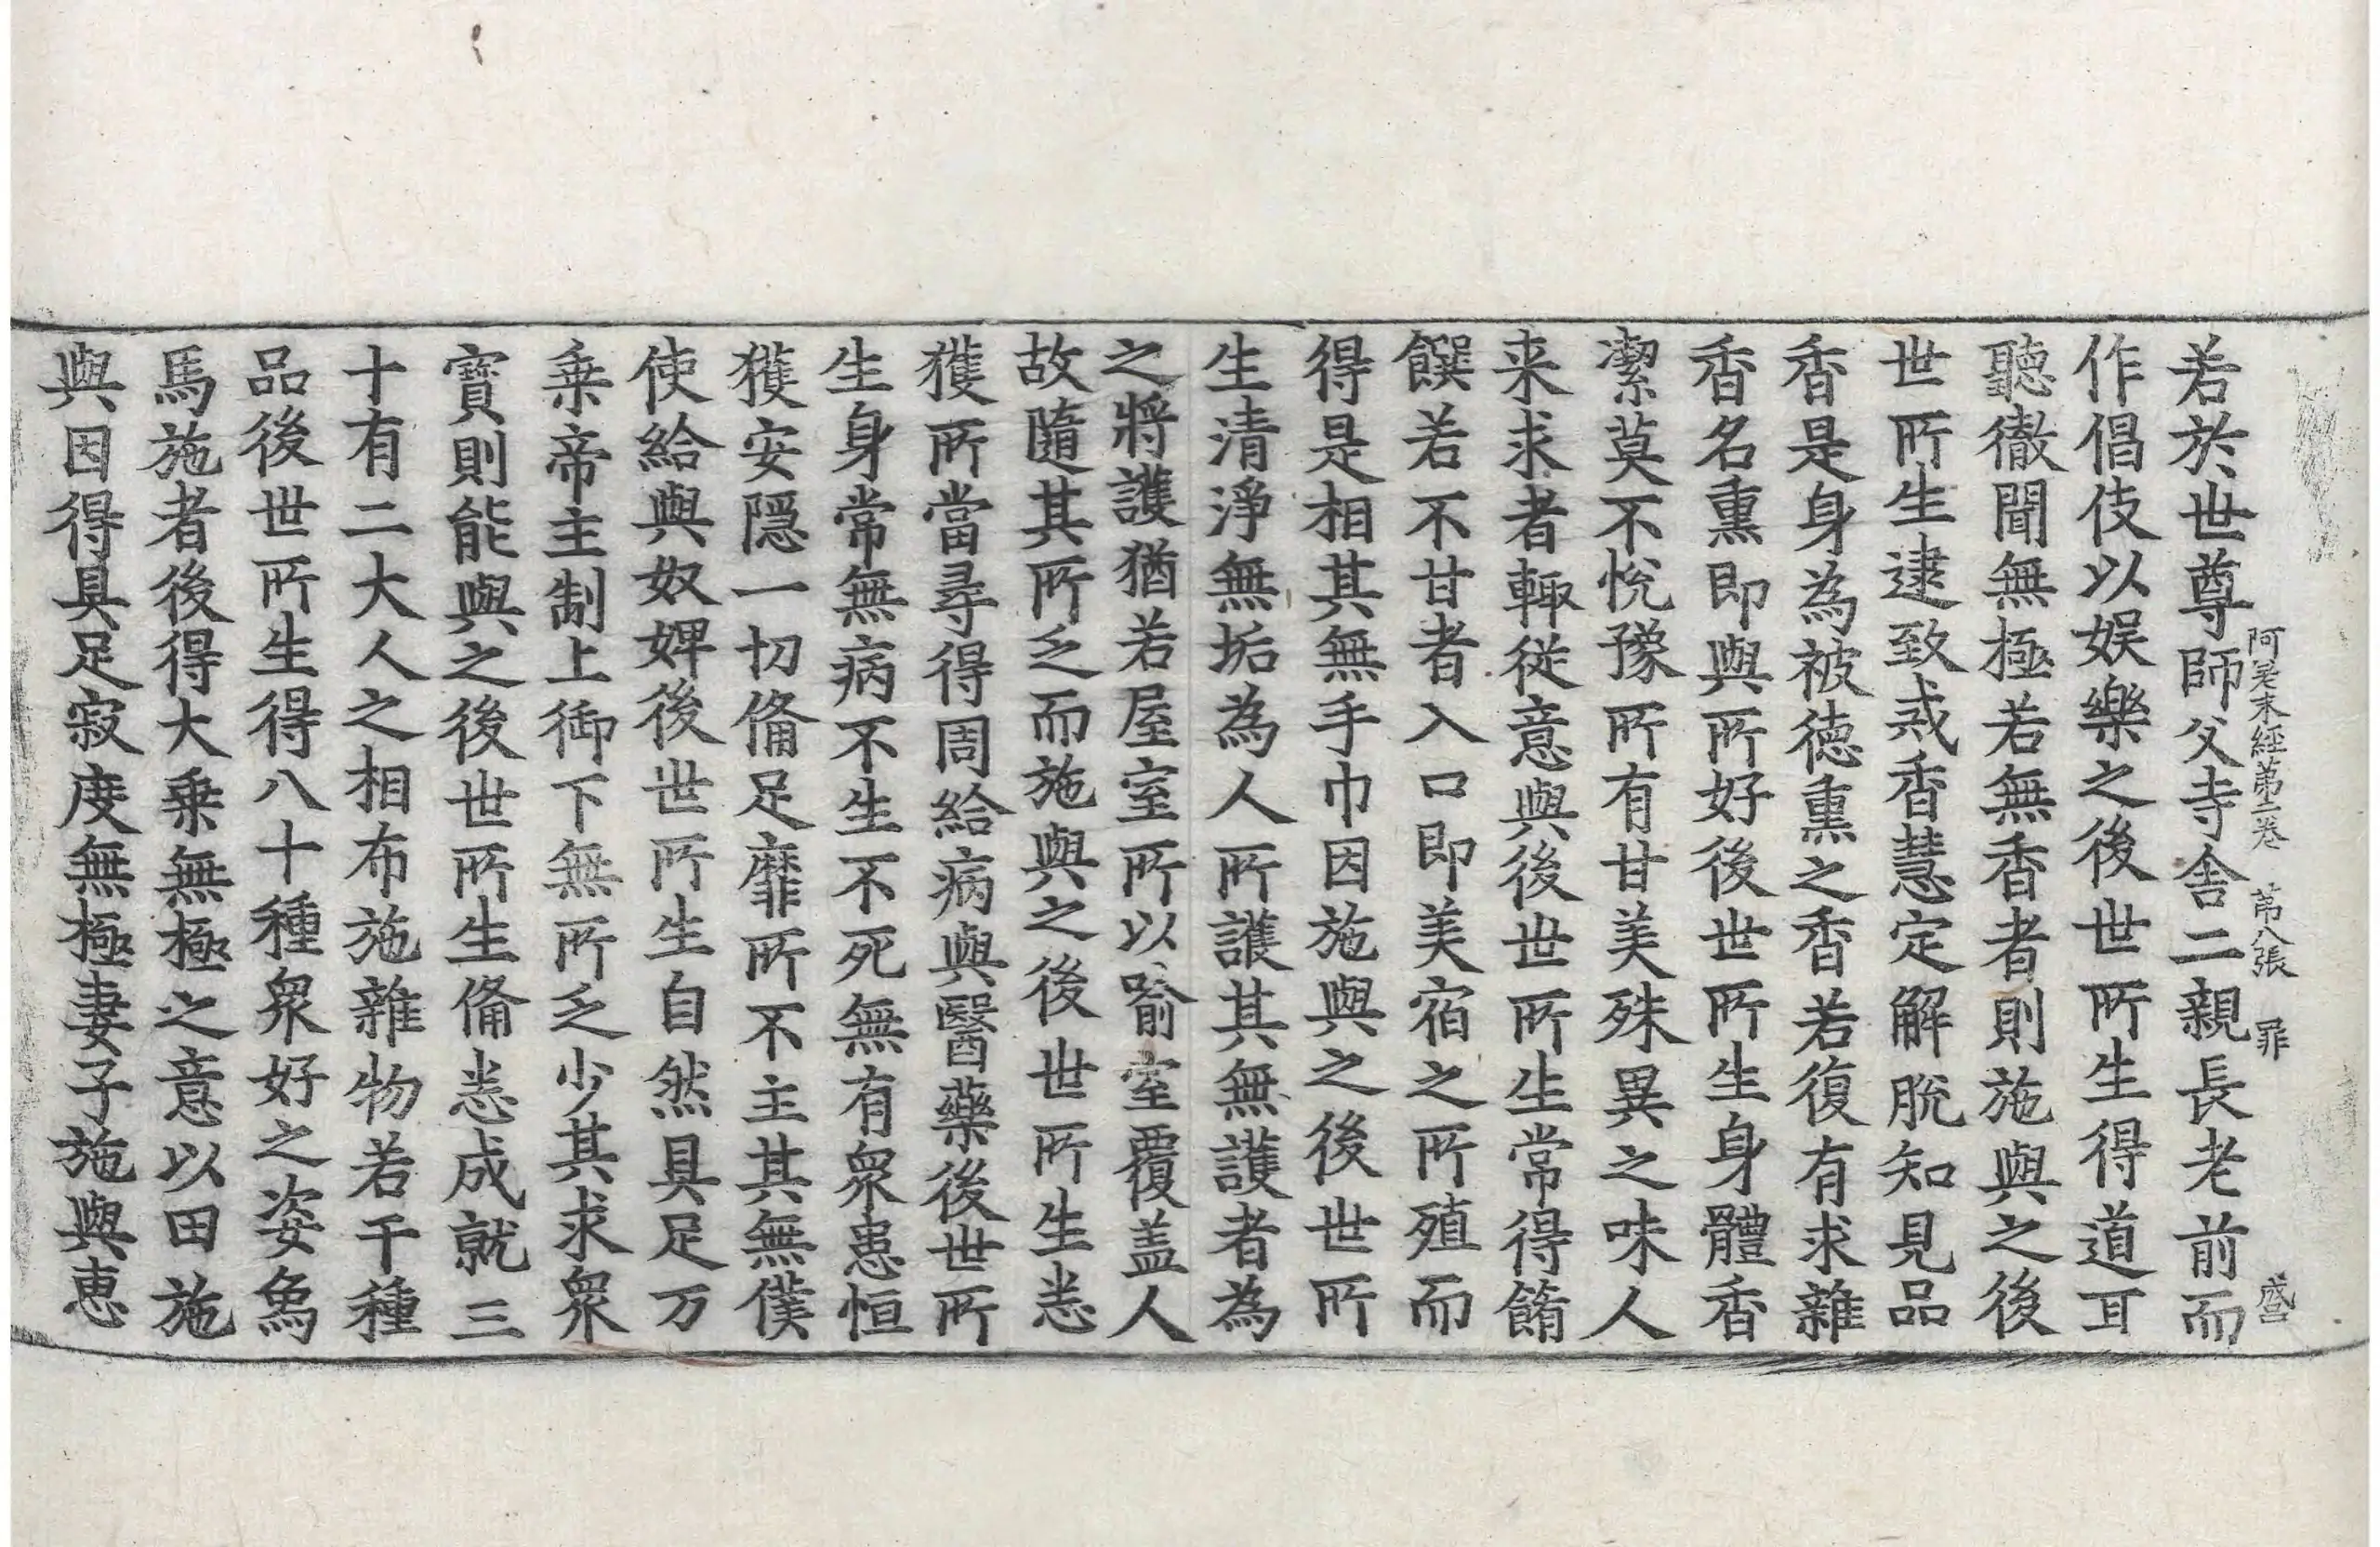 阿差末經第二卷 第八張 罪 盛
若於世尊師父寺舍二親長老前而
作倡伎以娛樂之後世所生得道耳
聽徹聞無極若無香者則施與之後
世所生逮致戒香慧定解脫知見品
香是身為被德熏之香若復有求雜
香名熏即與所好後世所生身體香
潔莫不悅豫所有甘美殊異之味人
来求者輙從意與後世所生常得餚
饌若不甘者入口即美宿之所殖而
得是相其無手巾因施與之後世所
生清淨無垢為人所護其無護者為
之將護猶若屋室所以喻室覆盖人
故隨其所乏而施與之後世所生悉
獲所當尋得周給病與醫藥後世所
生身常無病不生不死無有眾患恒
獲安隱一切俻足靡所不主其無僕
使給與奴婢後世所生自然具足万
乗帝主制上御下無所乏少其求眾
寶則能與之後世所生俻悉成就三
十有二大人之相布施雜物若干種
品後世所生得八十種眾好之姿象
馬施者後得大乗無極之意以田施
與因得具足寂度無極妻子施與恵